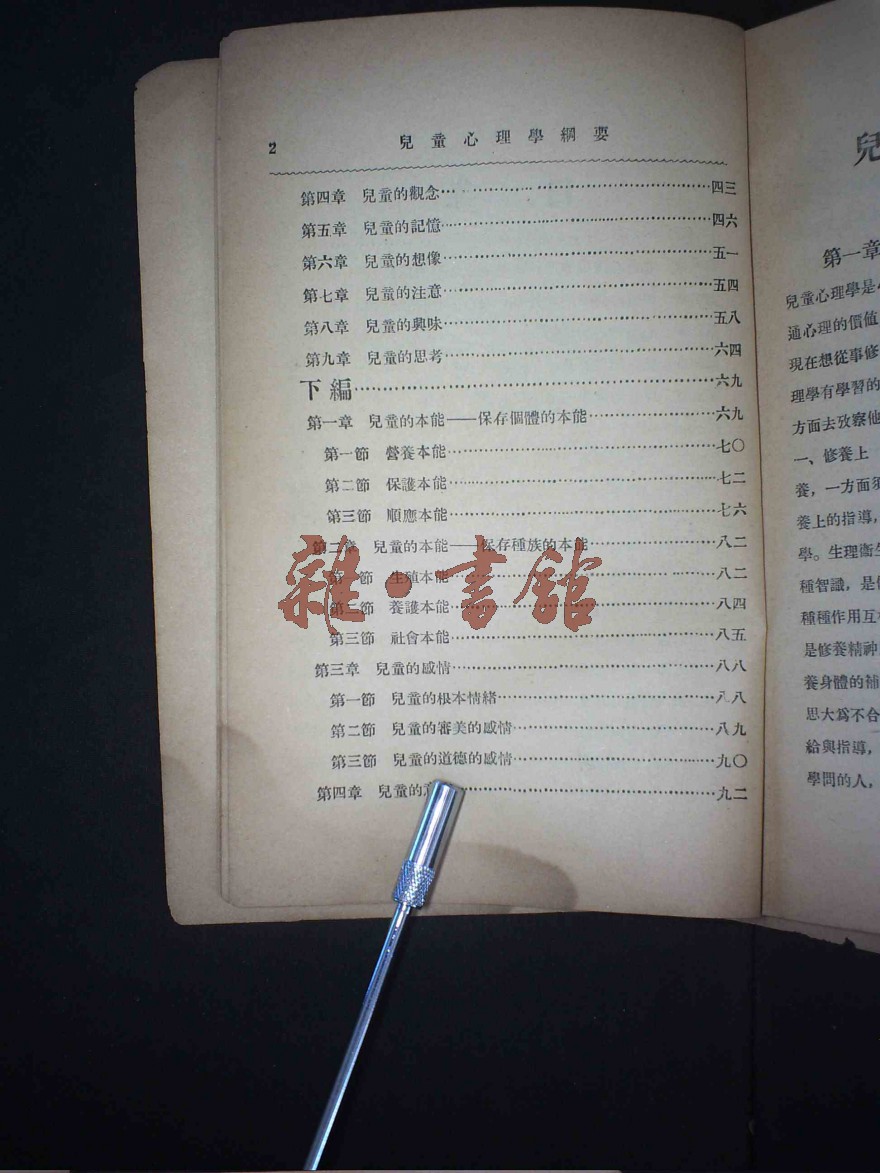 2 兒童心理學綱要
第四章 兒童的觀念……………………四三
第五章 兒童的記憶……………………四六
第六章 兒童的想像……………………五一
第七章 兒童的注意……………………五四
第八章 兒童的興味……………………五八
第九章 兒童的思考……………………六四
下編……………………六九
第一章 兒童的本能——保存個體的本能……………六九
第一節 營養本能……………………七〇
第二節 保護本能……………………七二
第三節 順應本能……………………七六
第二章 兒童的本能——保存種族的本能……………八二
第一節 生殖本能……………………八二
第二節 養護本能……………………八四
第三節 社會本能……………………八五
第三章 兒童的感情……………………八八
第一節 兒童的根本情緒……………………八八
第二節 兒童的審美的感情……………………八九
第三節 兒童的道德的感情……………………九〇
第四章 兒童的……………………九二
雜·書館
兒
第一章
兒童心理學是
通心理的價值
現在想從事修
理學有學習的
方面去攷察他
一、修養上
養，一方面須
養上的指導，
學。生理衞生
種智識，是
種種作用互
是修養精神
養身體的補
思大爲不合
給與指導，
學問的人，